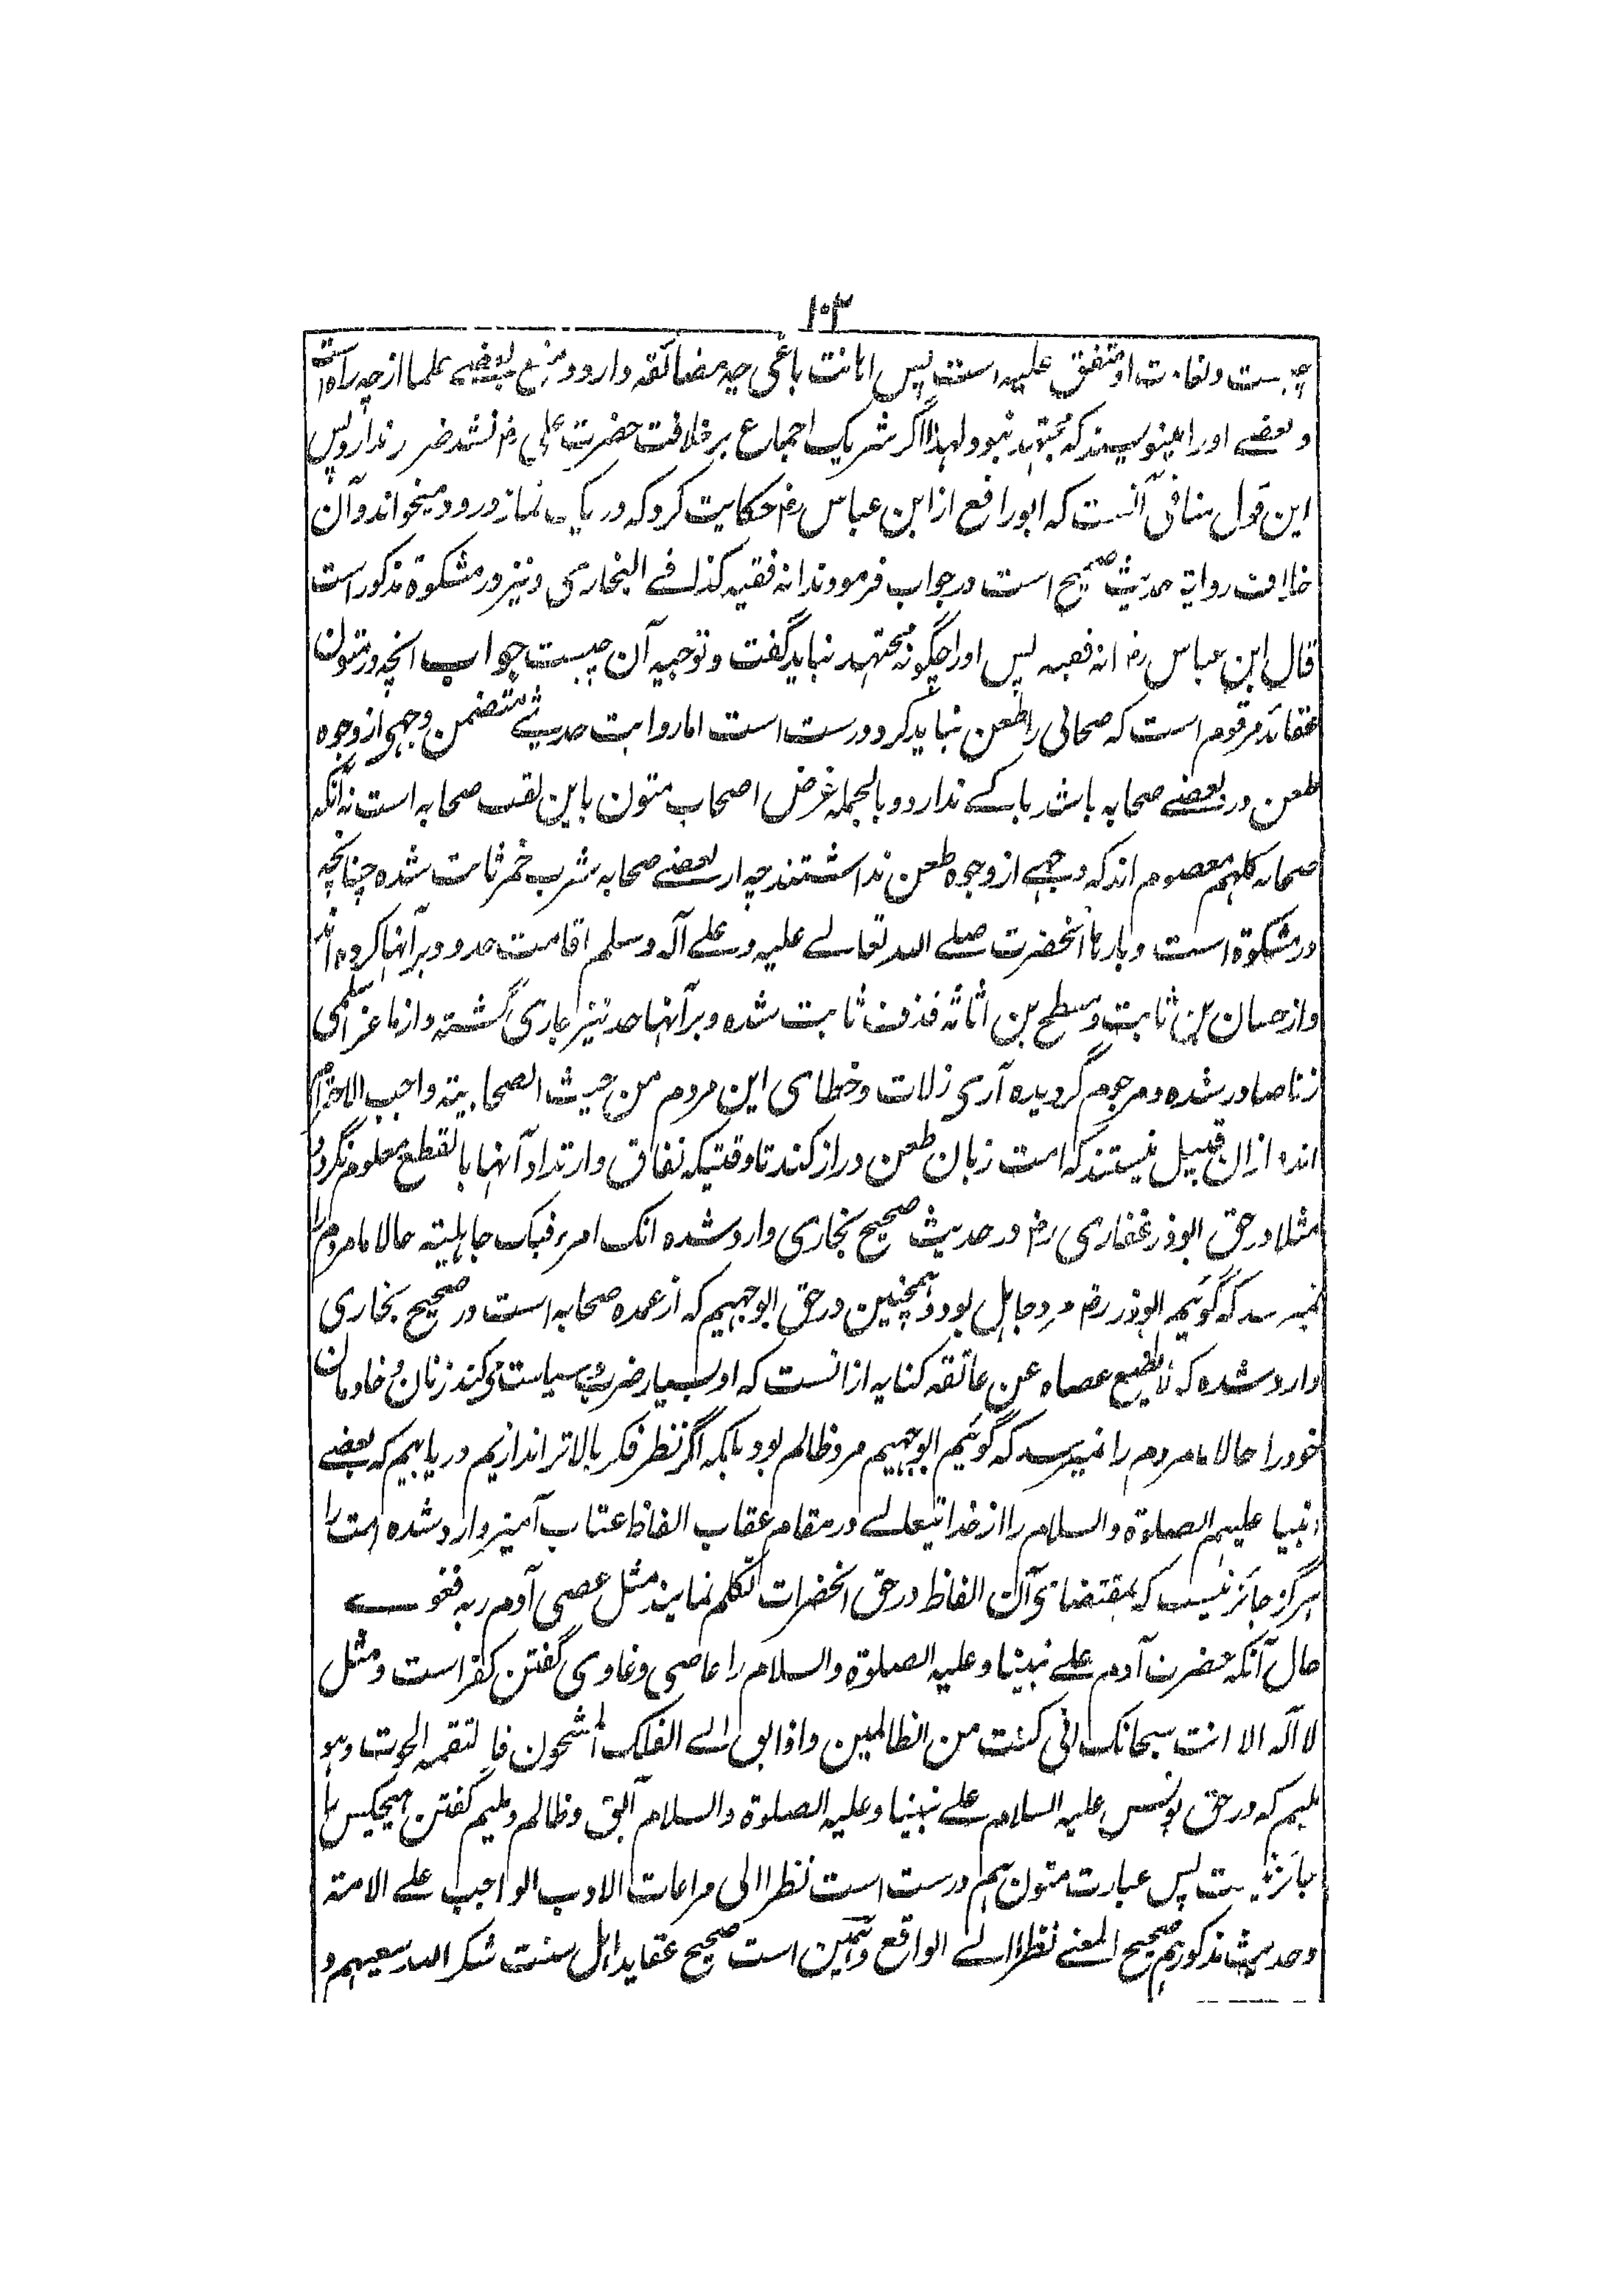 ۱۰۳
چیست و بغاوت او متفق علیه است پس اهانت باغی چه مضائقه دارد و منع بعضے علما از چه راه است
و بعضے اورا مینویسند که مجتهد نبود و لهذا اگر شریک اجماع بر خلافت حضرت علی رض نشد ضرر ندارد پس
این قول منافی آنست که ابو رافع از ابن عباس رض حکایت کرد که در یک نماز درود میخواند و آن
خلاف روایة حدیث صحیح است در جواب فرمودند انه فقیه کذا فے البخاری و نیز در مشکوة مذکور است
قال ابن عباس رض انه فقیه پس اورا چگونه مجتهد نباید گفت و توجیه آن چیست جواب انچه در متون
عقائد مرقوم است که صحابی را طعن نباید کرد درست است اما روایت حدیثے متضمن وجهی از وجوه
طعن در بعضے صحابه باشد باکے ندارد و بالجمله غرض اصحاب متون باین لقب صحابه است نه آنکه
صحابه کلهم معصوم اند که وجهے از وجوه طعن نداشتند چه از بعضے صحابه شرب خمر ثابت شده چنانچه
در مشکوة است و بارها آنحضرت صلے الله تعالے علیه و علے آله و سلم اقامت حدود بر آنها کرده اند
و از حسان بن ثابت و مسطح بن اثاثه قذف ثابت شده و بر آنها حد نیز جاری گشته و از ماعز اسلمی
زنا صادر شده و مرجوم گردیده آری زلات و خطای این مردم من حیث الصحابیة واجب الاحترام
اند از ان قبیل نیستند که امت زبان طعن دراز کند تا وقتیکه نفاق و ارتداد آنها بالقطع معلوم نگردد
مثلا در حق ابوذر غفاری رض در حدیث صحیح بخاری وارد شده انک امرء فیک جاهلیته حالا ما مردم را
نمیرسد که گوئیم ابوذر رض مرد جاهل بود و همچنین در حق ابو جهیم که از عمده صحابه است در صحیح بخاری
وارد شده که لا یضع عصاه عن عاتقه کنایه از انست که او بسیار ضرب و سیاست می کند زنان و خادمان
خود را حالا ما مردم را نمیرسد که گوئیم ابو جهیم مرد ظالم بود بلکه اگر نظر فکر بالاتر اندازیم دریابیم که بعضے
انبیا علیهم الصلوة والسلام را از خدا تعالے در مقام عقاب الفاظ عتاب آمیز وارد شده امت را
هرگز جائز نیست که بمقتضای آن الفاظ در حق آنحضرات تکلم نمایند مثل عصی آدم ربه فغوے
حال آنکه حضرت آدم علے نبینا و علیه الصلوة والسلام را عاصی و غاوی گفتن کفر است و مثل
لا اله الا انت سبحانک انی کنت من الظالمین و اذ ابق الے الفلک المشحون فالتقمه الحوت وهو
ملیم که در حق یونس علیه السلام علے نبینا و علیه الصلوة والسلام آبق و ظالم و ملیم گفتن هیچکس را
جائز نیست پس عبارت متون هم درست است نظرا الی مراعات الادب الواجب علے الامته
و حدیث مذکور هم صحیح المعنے نظرا الے الواقع و همین است صحیح عقاید اهل سنت شکر الله سعیهم و